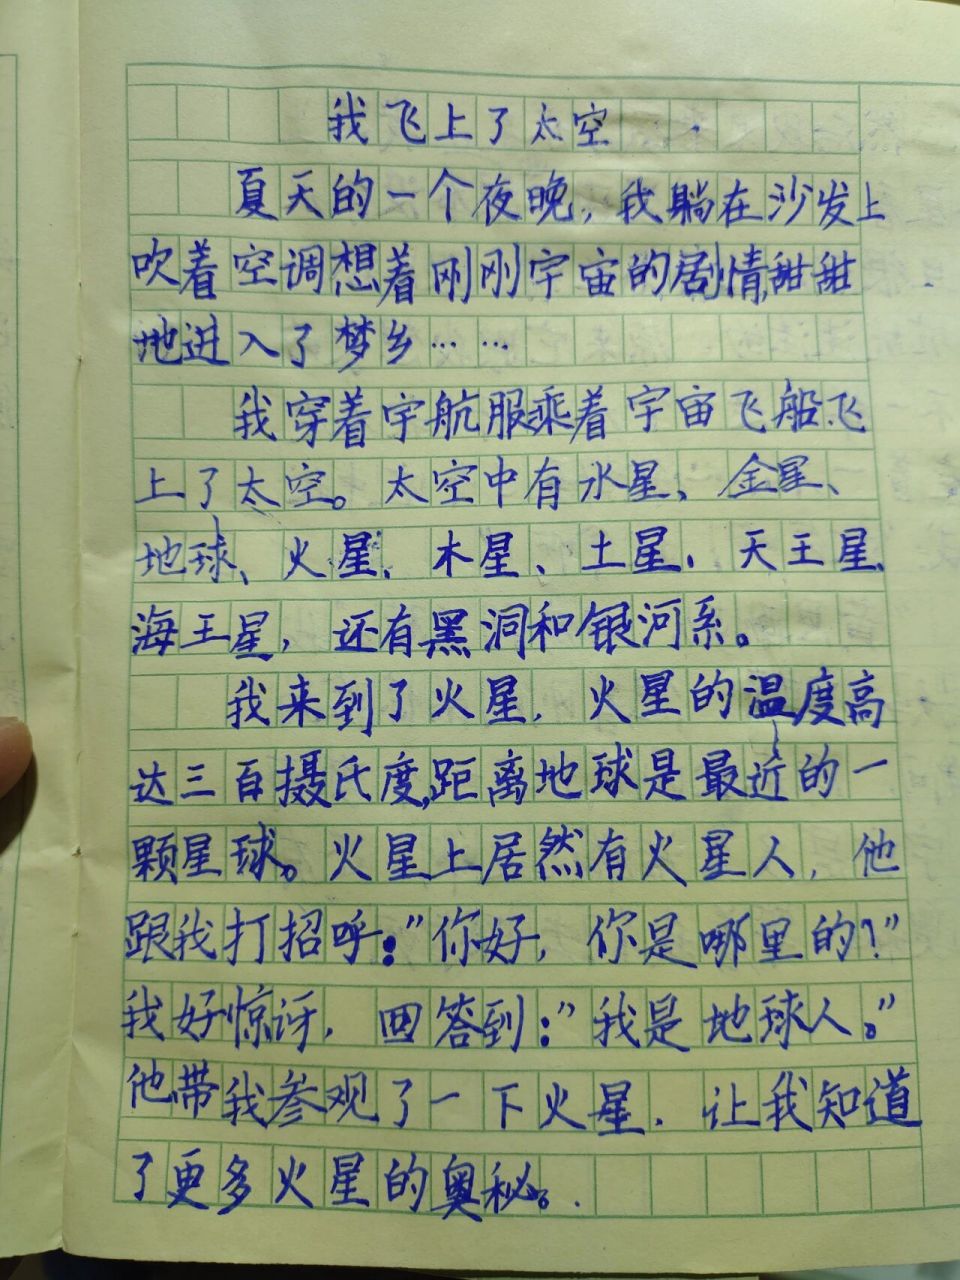 我飞上了太空
夏天的一个夜晚,我躺在沙发上
吹着空调想着刚刚宇宙的剧情,甜甜
地进入了梦乡……
我穿着宇航服乘着宇宙飞船飞
上了太空。太空中有水星、金星、
地球、火星、木星、土星、天王星、
海王星,还有黑洞和银河系。
我来到了火星,火星的温度高
达三百摄氏度,距离地球是最近的一
颗星球。火星上居然有火星人,他
跟我打招呼:"你好,你是哪里的?"
我好惊讶,回答到:"我是地球人。"
他带我参观了一下火星,让我知道
了更多火星的奥秘。